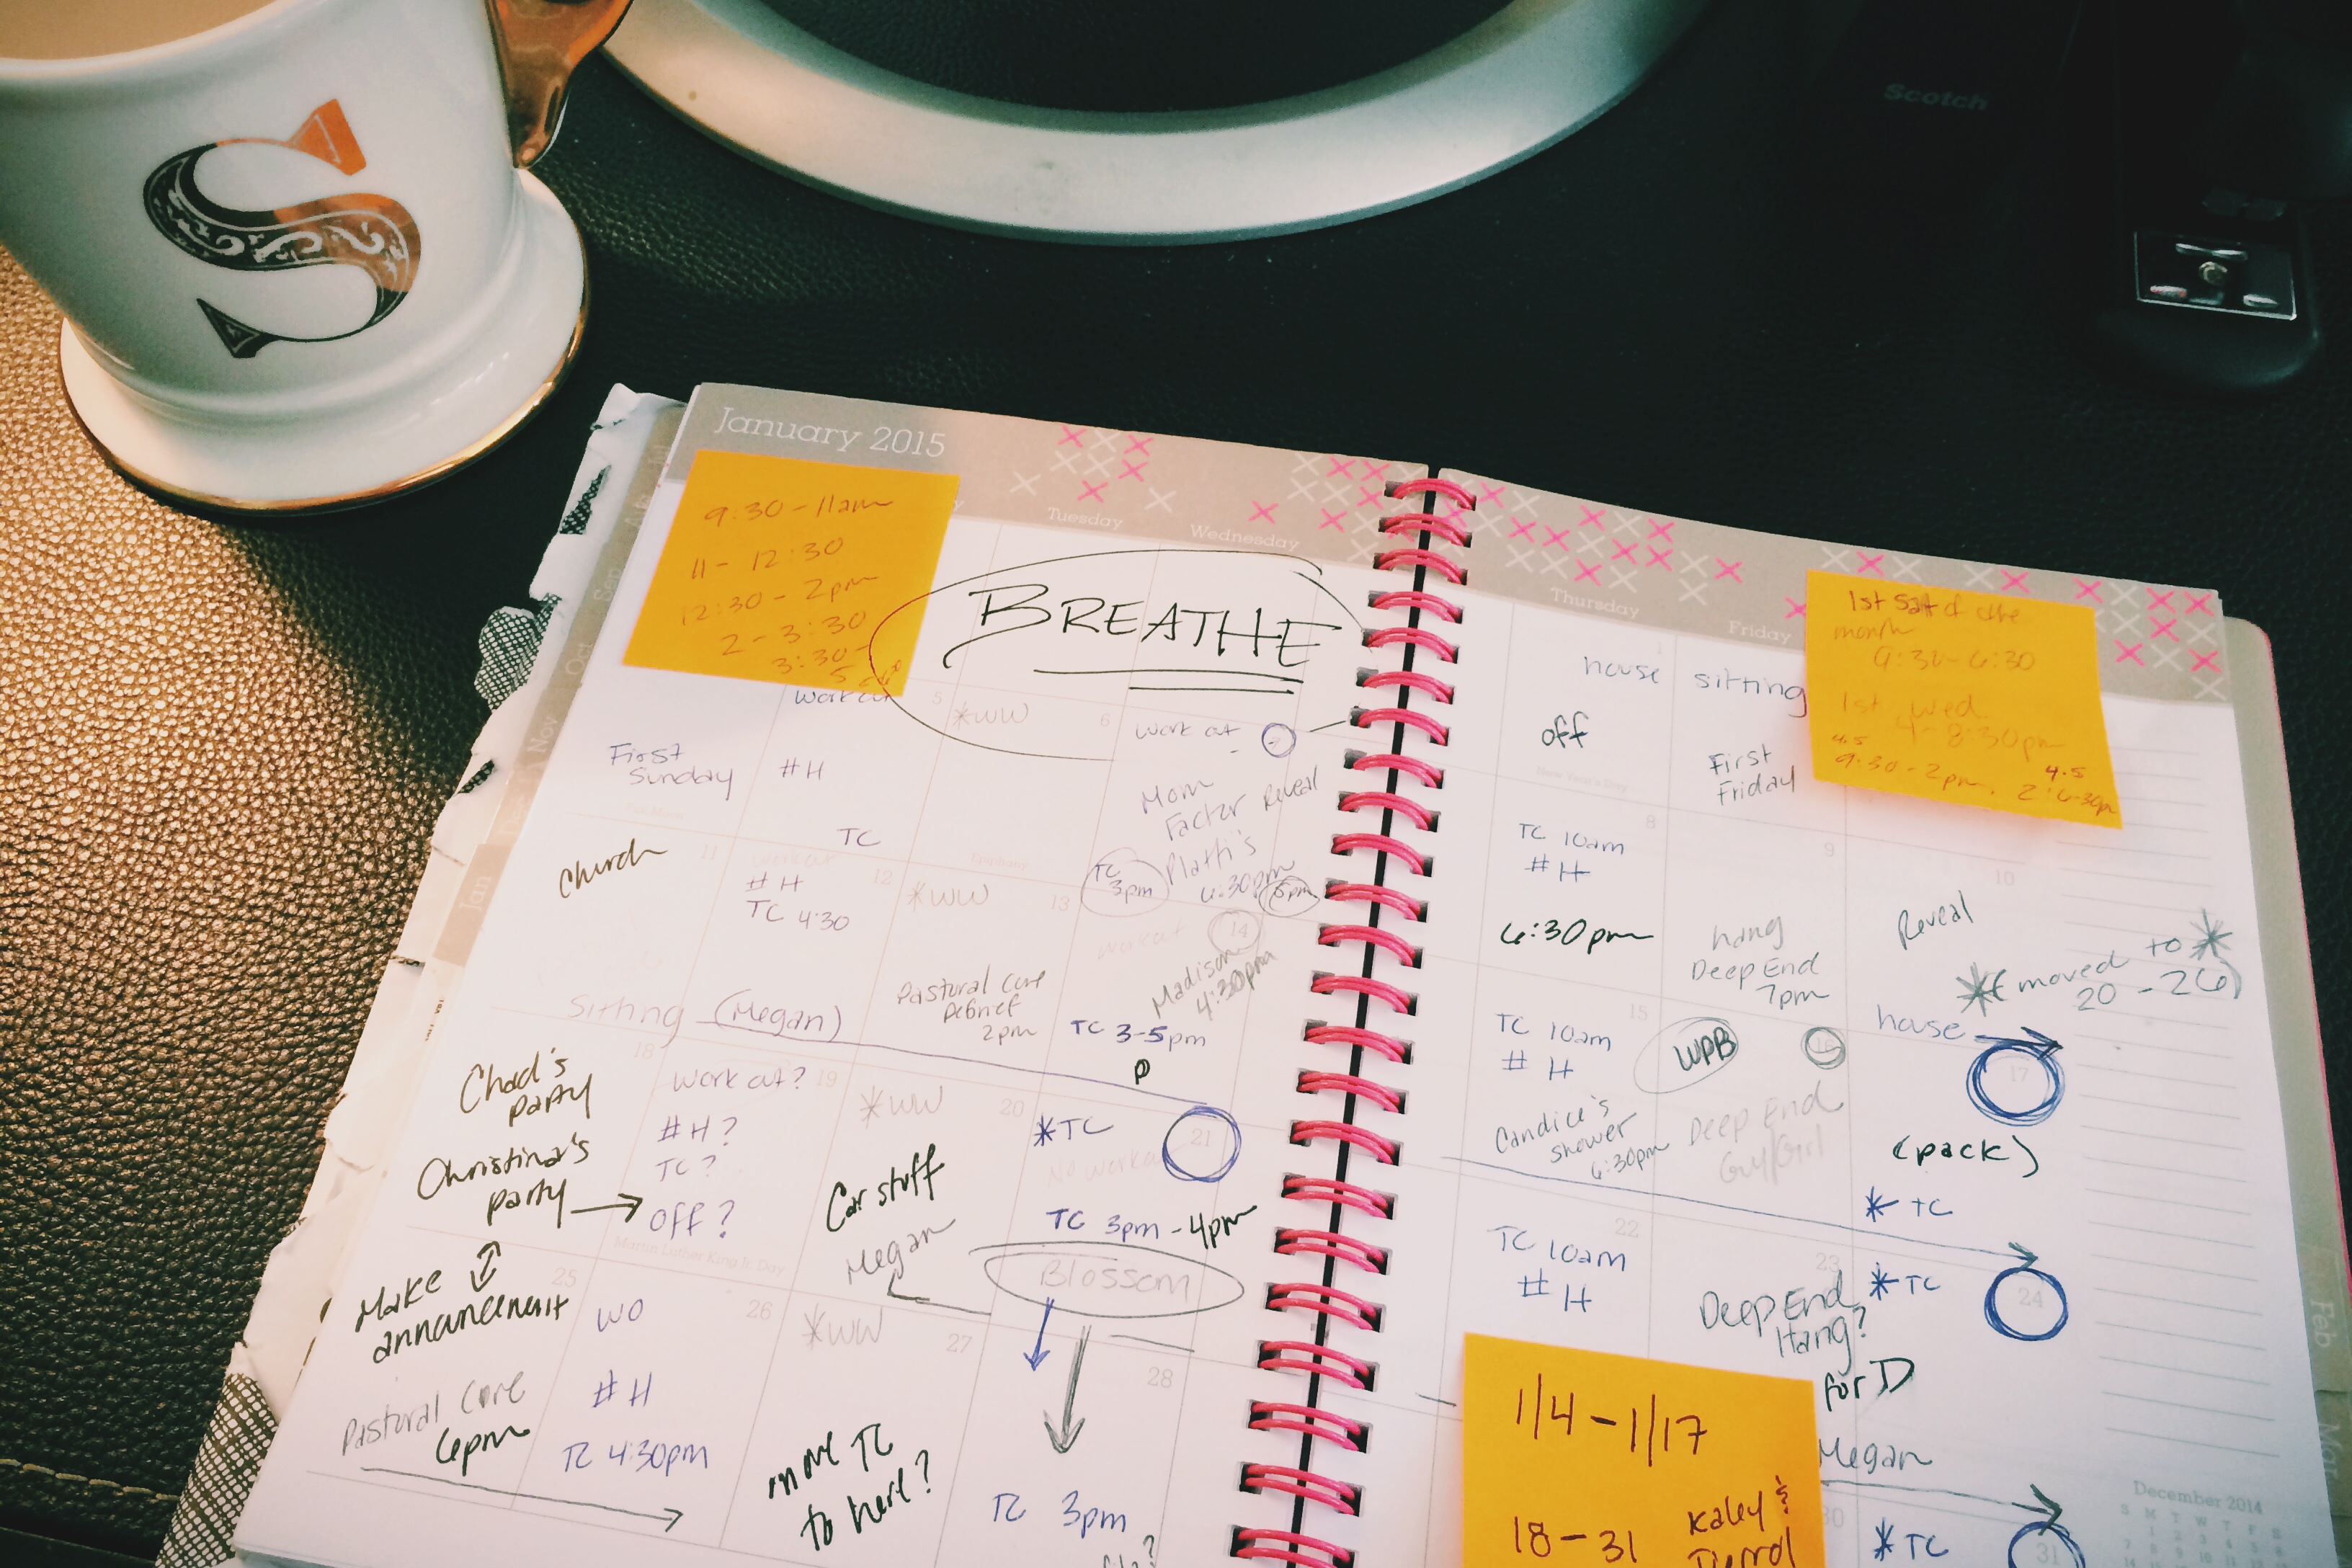 S
Scotch
January 2015
Tuesday
Wednesday
Thursday
Friday
9:30 - 11am
11 - 12:30
12:30 - 2pm
2 - 3:30
3:30 -
BREATHE
1
house sitting
off
New Year's Day
First
Friday
1st Sat of the
month
9:30 - 6:30
1st Wed
4 - 8:30pm
4.5
9:30 - 2pm.
4.5
2 - 6:30pm
First
Sunday
work out
5
#H
TC
*WW
6
Epiphany
work out
Mom
Factor Reveal
Platti's
6:30pm
TC
3pm
5pm
TC 10am
8
#H
6:30pm
9
hang
Deep End
7pm
10
Reveal
*(moved to *
20 - 26)
Church
11
12
#H
TC 4:30
*WW
13
Pastoral Care
Debrief
2pm
workout
14
Madison
4:30pm
TC 3-5pm
P
TC 10am
15
#H
Candice's
shower
6:30pm
WPB
16
Deep End
Guy/Girl
house
17
(pack)
* TC
Sitting (Megan)
18
Chad's
party
Christina's
party
work out?
19
#H?
TC?
off?
Martin Luther King Jr. Day
*WW
20
Car stuff
Megan
*TC
21
No workout
TC 3pm - 4pm
Blossom
TC 10am
22
#H
23
Deep End
Hang?
for D
Megan
* TC
24
Make
announcement
25
Pastoral Care
6pm
WO
26
#H
TC 4:30pm
*WW
27
move TC
to here?
28
TC 3pm
1/4 - 1/17
18 - 31
Kaley &
30
* TC
31
December 2014
S M T W T F S
Jan
Feb
Mar
Sep
Oct
Nov
Dec